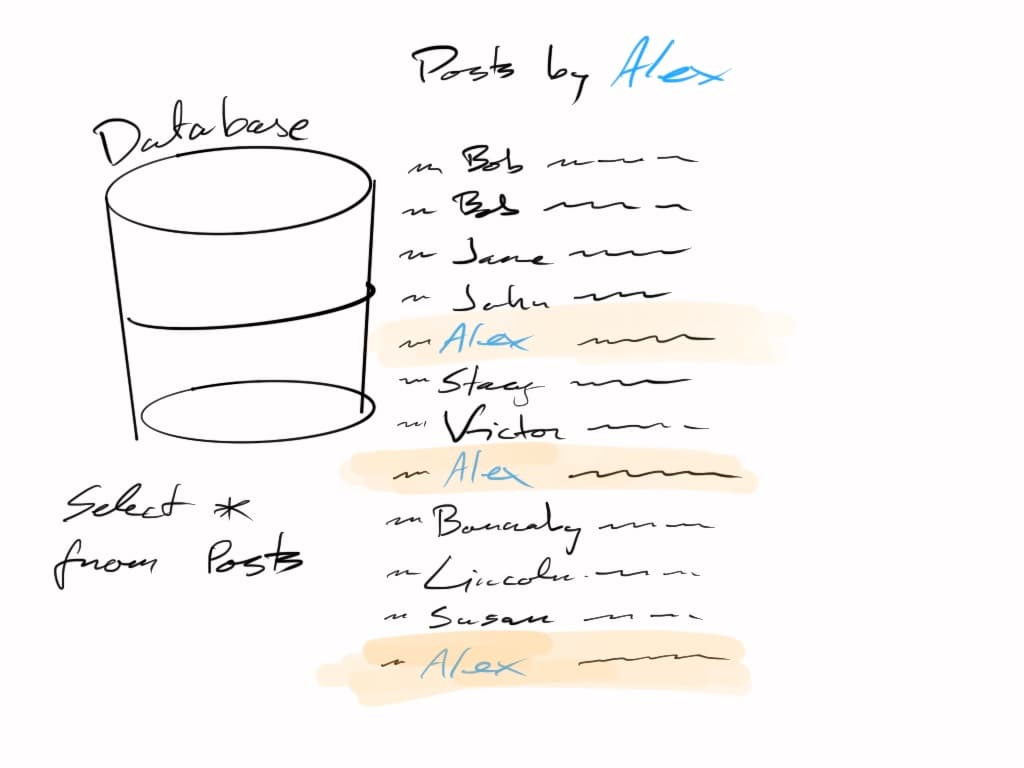 Posts by Alex
Database
Bob
Bob
Jane
John
Alex
Stacy
Victor
Alex
Lincoln
Susan
Alex
Select *
from Posts